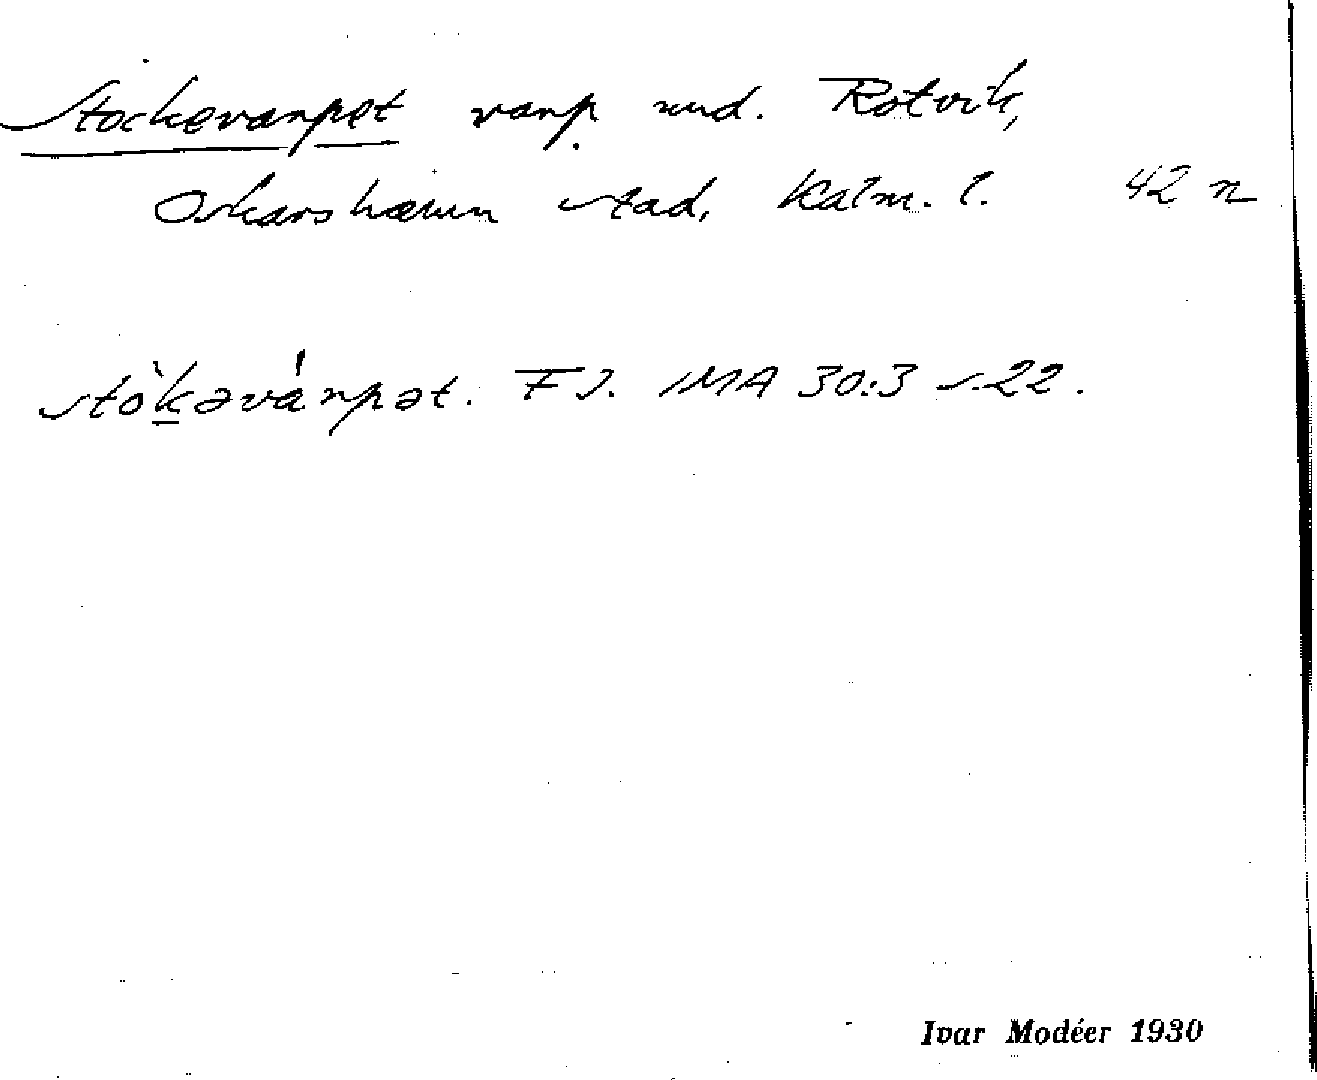 Stockevarpet varp und. Rotvik,
Oskarshamn stad, Kalm. l. 42 n
stòkəvárpət. FJ. IMA 30:3 s.22.
Ivar Modéer 1930